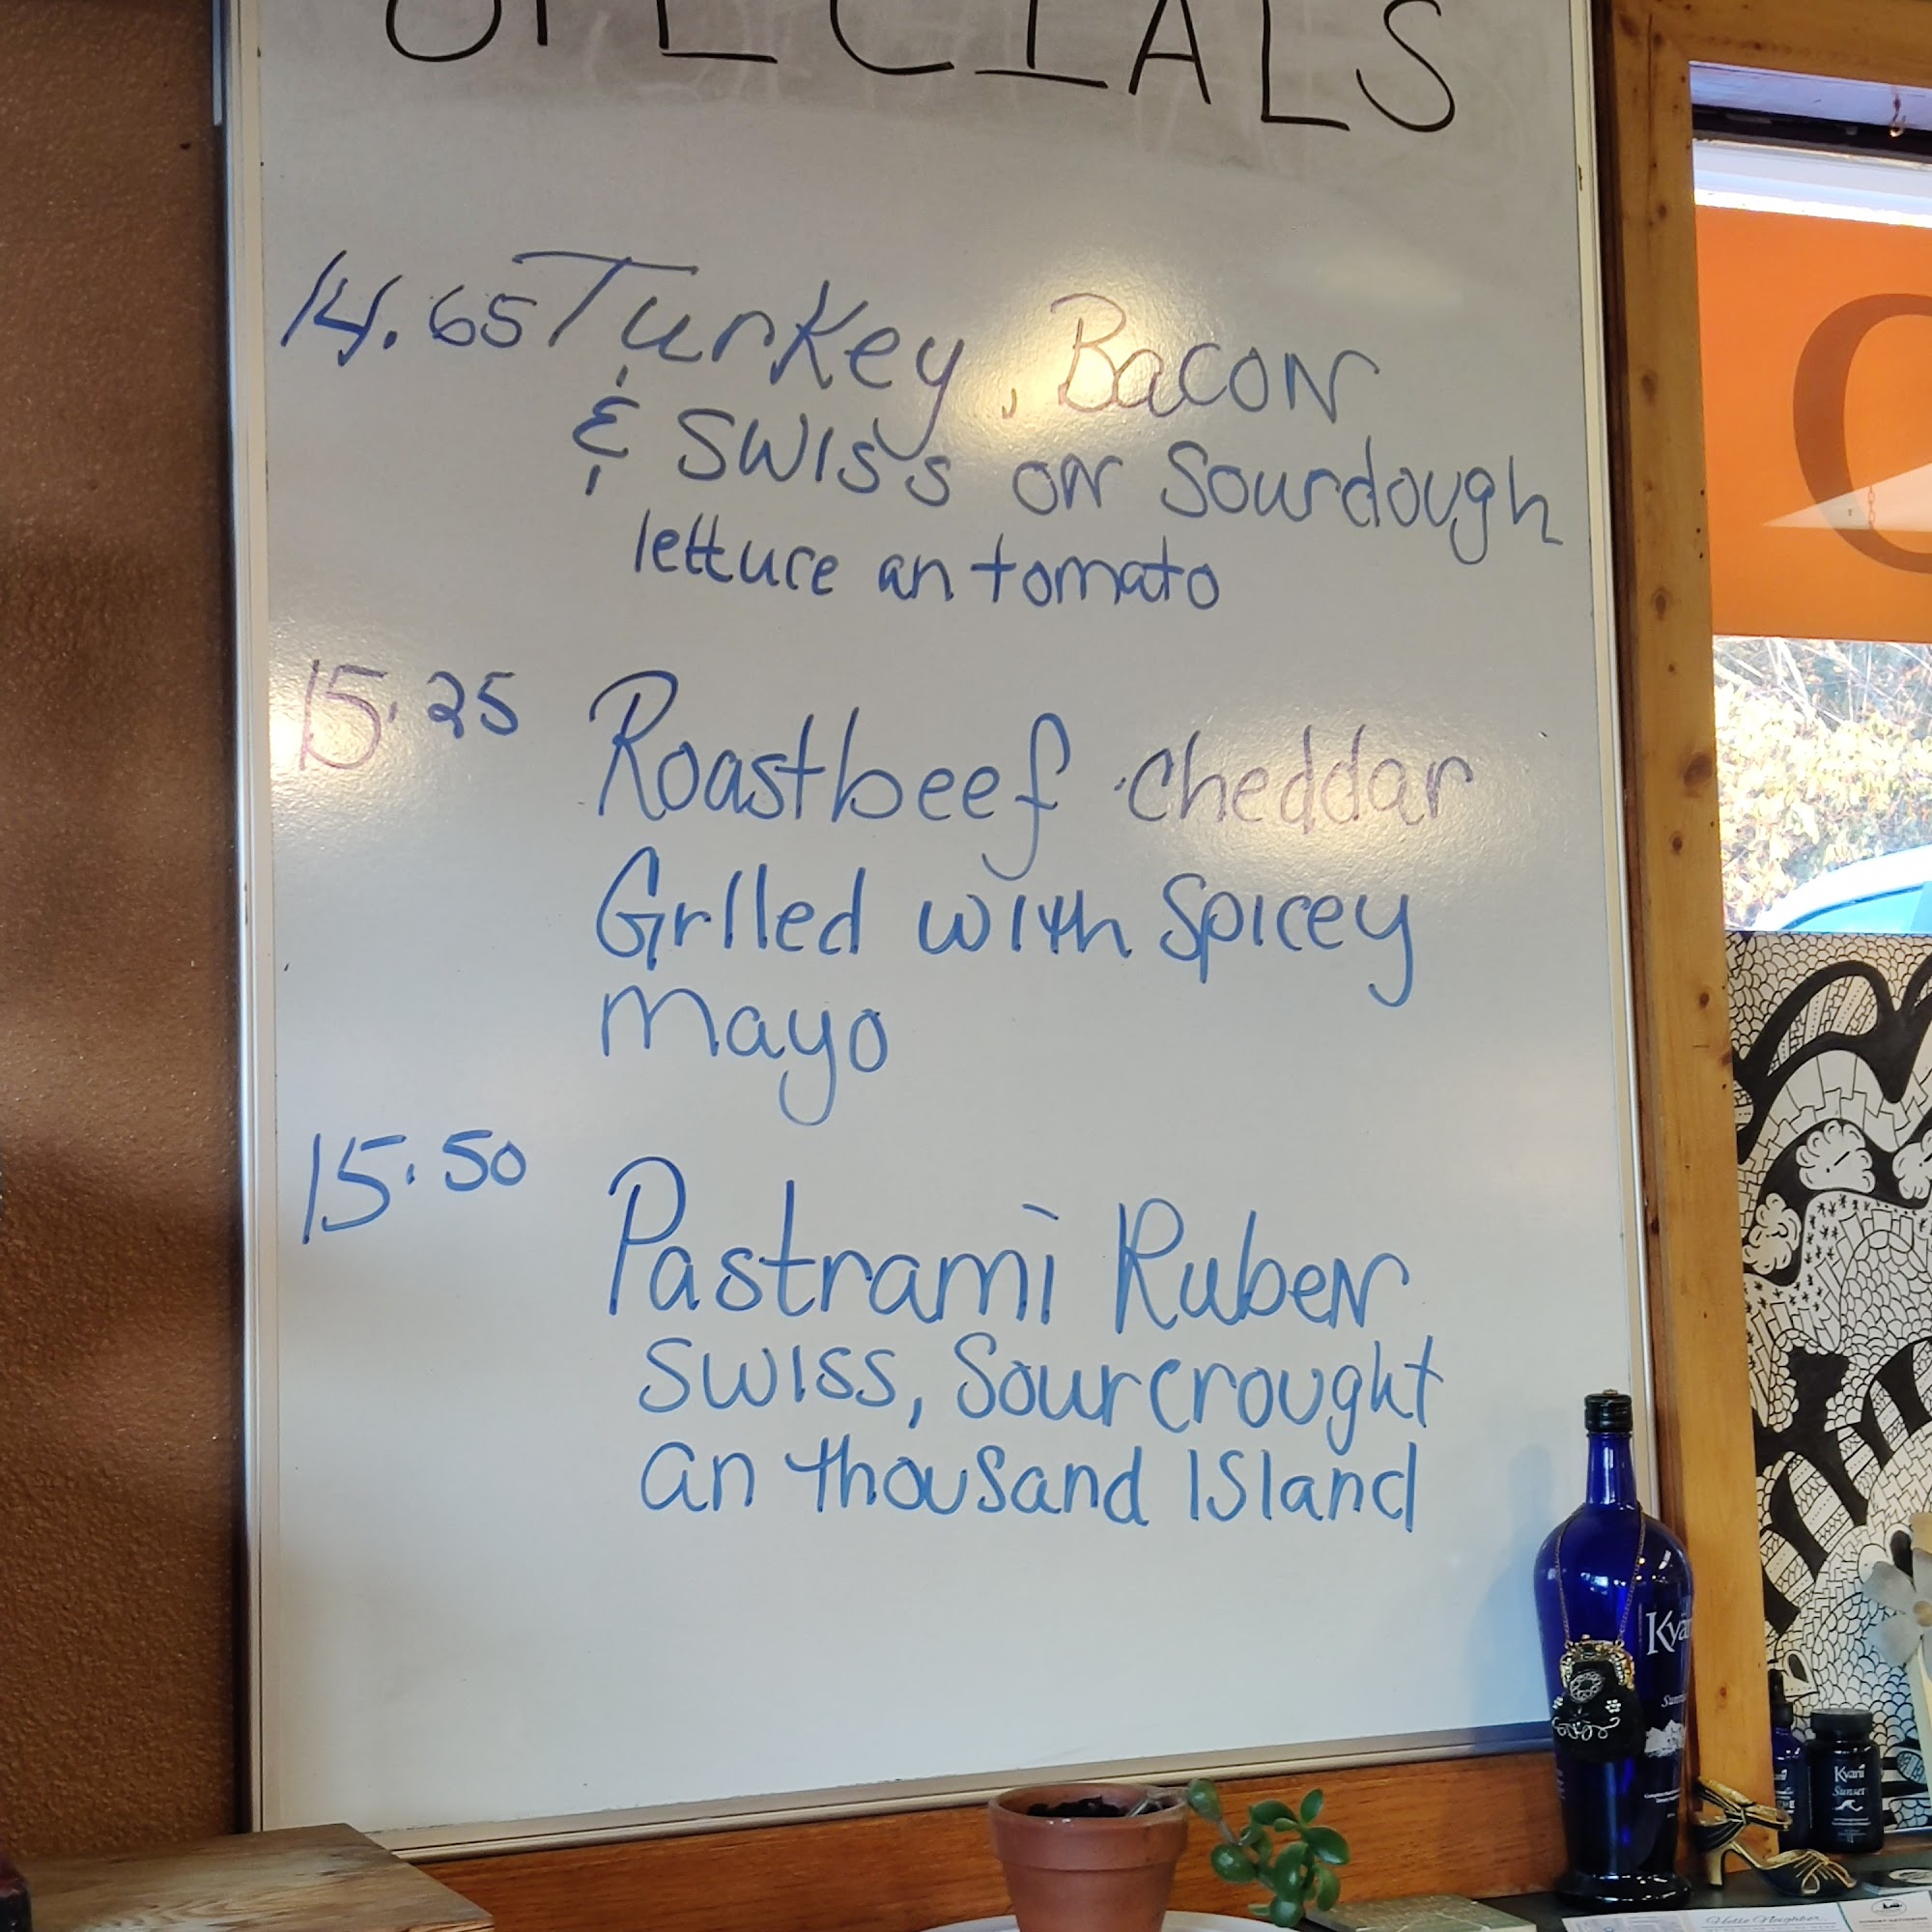 SPECIALS
14.65 Turkey, Bacon
& Swiss on Sourdough
lettuce an tomato
15.25 Roastbeef cheddar
Grlled with Spicey
Mayo
15.50 Pastrami Ruben
Swiss, Sourcrought
an thousand Island
Kyäni
Sunset
Hello Neighbor...